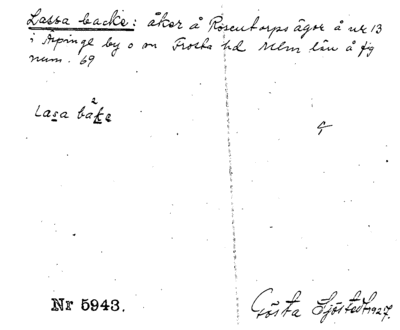 Lassa backe: åker å Rosentorps ägor å nr 13
i Arpinge by o sn Frosta hd Mlm län å fig
num. 69
Lasa bakε
Nr 5943.
Gösta Sjöstedt 1927.